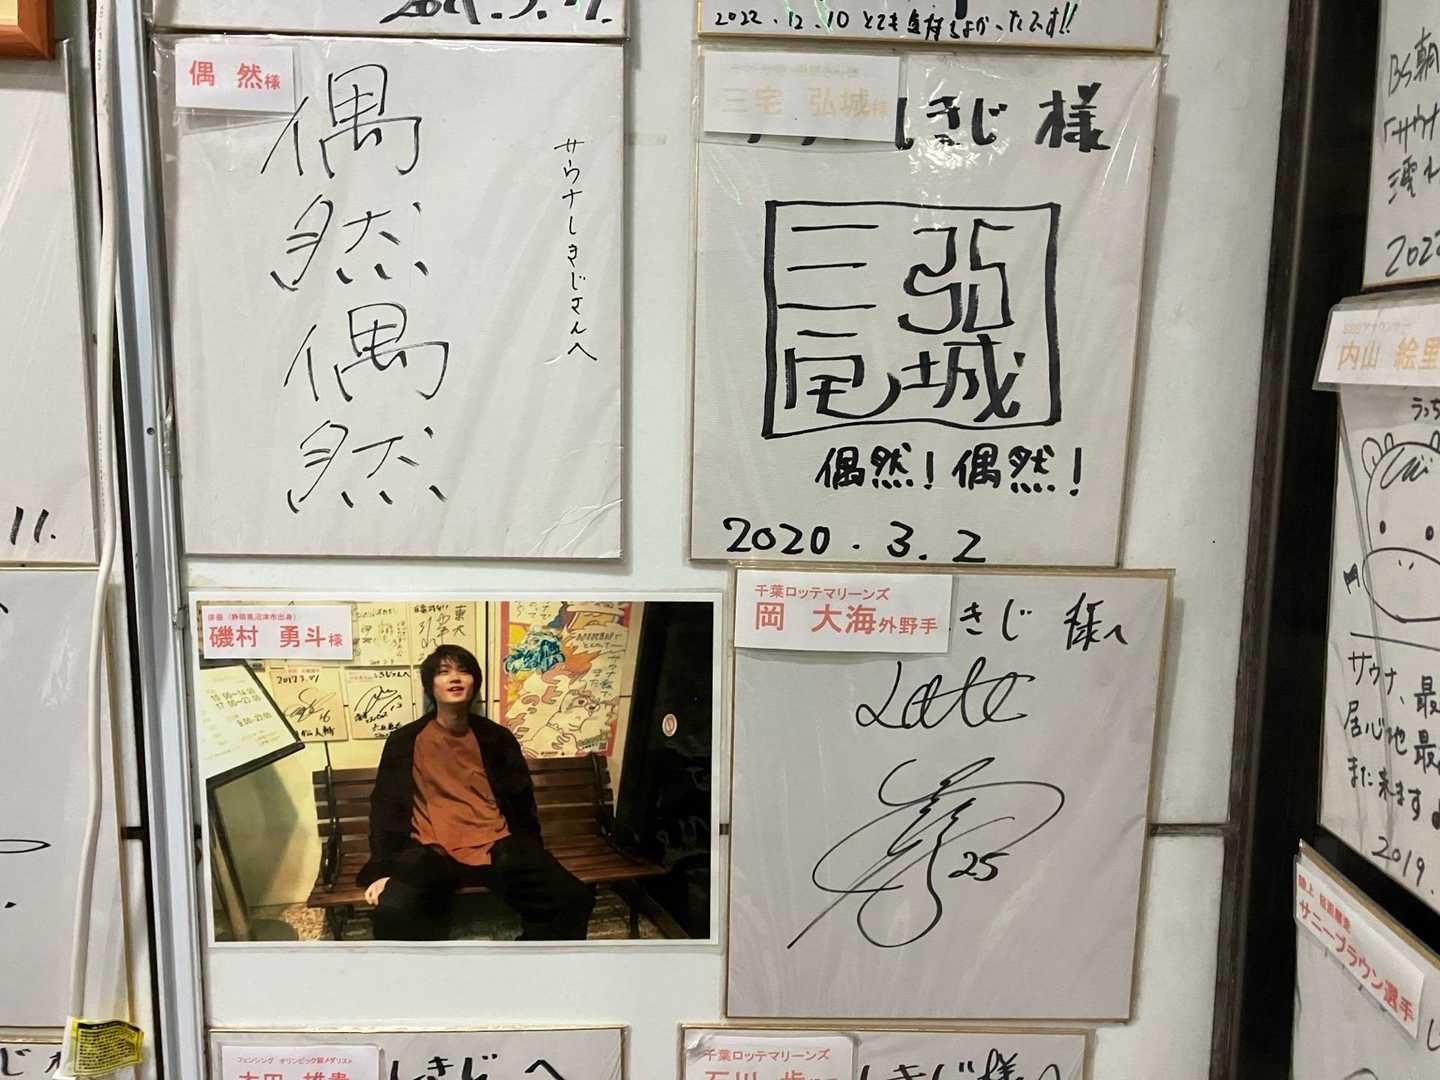 2022.12.10 とても気持ちよかったです!!
偶 然様
偶
然
偶
然
サウナしきじさんへ
三宅 弘城様
しきじ 様
三宅
弘城
偶然!偶然!
2020.3.2
11.
俳優(静岡県沼津市出身)
磯村 勇斗様
2017 3.
千葉ロッテマリーンズ
岡 大海外野手
きじ 様へ
25
BS朝
「サウナ
2022
SBSアナウンサー
内山 絵里
うっち
サウナ、最
居心地 最
また来ます
2019.
陸上 短距離走
サニーブラウン選手
フェンシング オリンピック銀メダリスト
太田 雄貴
しきじへ
千葉ロッテマリーンズ
石川 歩
しきじ様へ